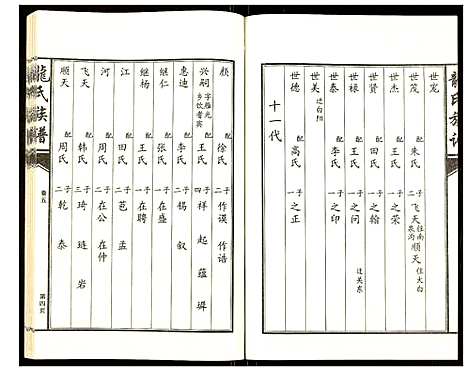 龍氏族谱
世宽
世茂 配 朱氏 二子 飞天 往南泉沟 顺天 住大白
世杰 配 王氏 一子 之荣
世贤 配 田氏 一子 之翰
世禄 配 王氏 一子 之问 迁关东
世泰 配 李氏 一子 之印
世美 迁白阳
世德 配 高氏 一子 之正
十一代
颜 配 徐氏 二子 作谟 作诰
兴嗣 字雁光 乡饮耆宾 配 王氏 四子 祥 起 蕴 墀
惠迪 配 李氏 二子 锡 叙
继仁 配 张氏 一子 在盛
继杨 配 王氏 一子 在聘
江 配 田氏 二子 芭 孟
河 配 周氏 二子 在公 在仲
飞天 配 韩氏 三子 琦 琏 岩
顺天 配 周氏 二子 乾 泰
龍氏族普
卷五
第四页